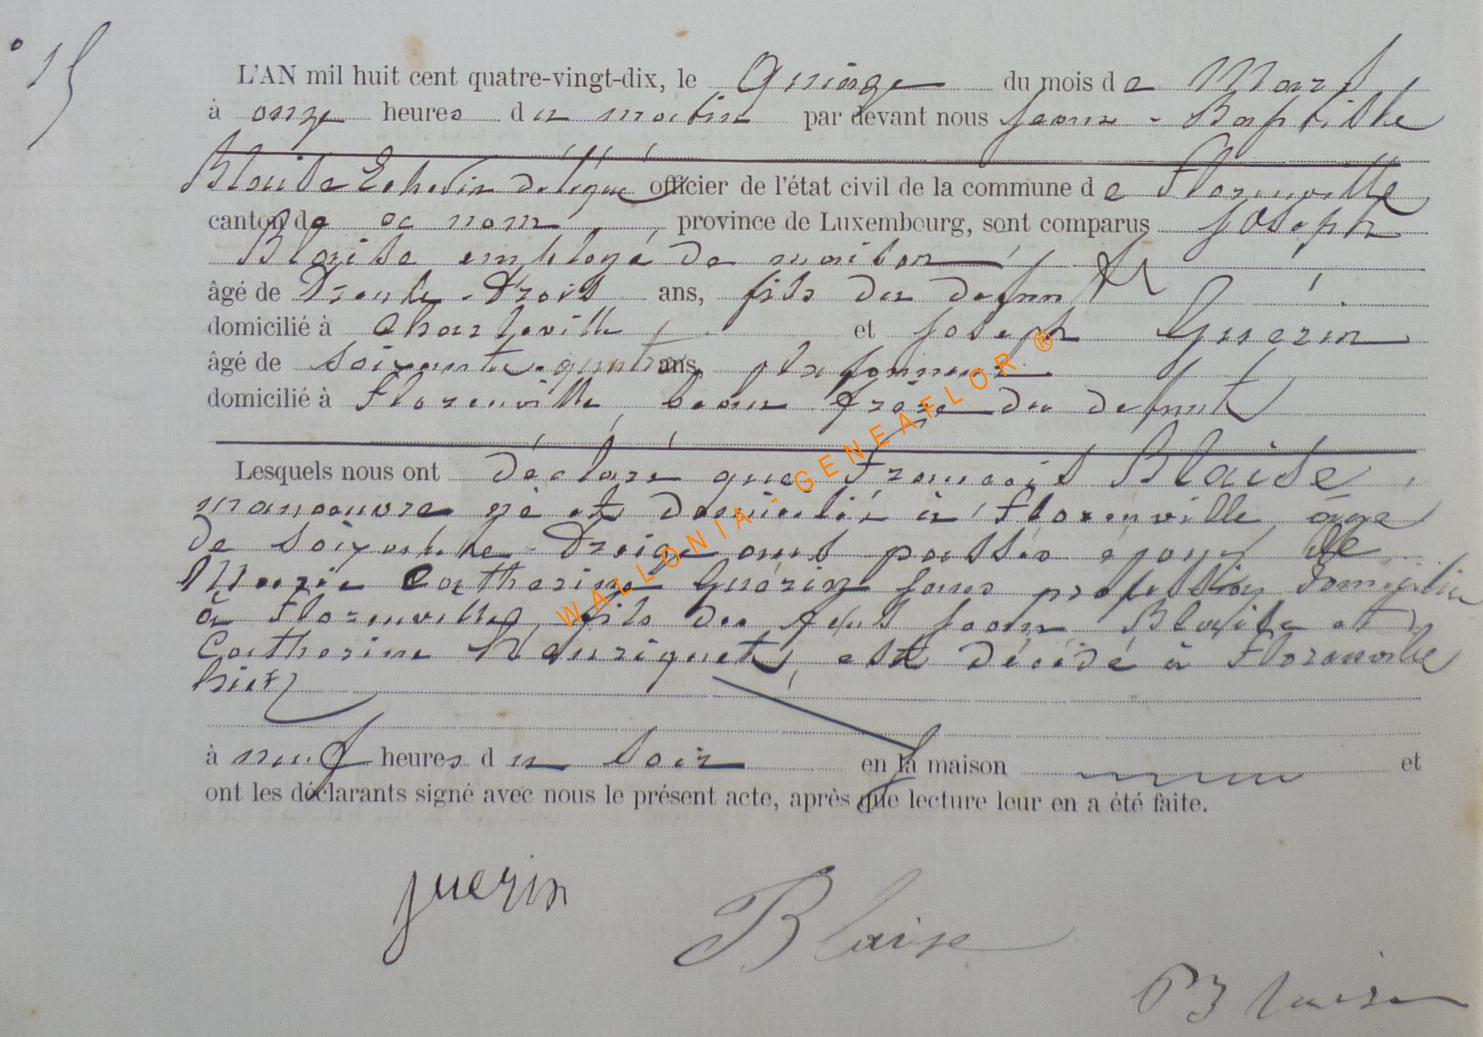 ° 15
L'AN mil huit cent quatre-vingt-dix, le Quinze du mois de Mars
à onze heures du matin par devant nous Jean-Baptiste
Blaise Echevin délégué officier de l'état civil de la commune de Florenville
canton de ce nom, province de Luxembourg, sont comparus Joseph
Blaise employé de maison
âgé de Trente-trois ans, fils du défunt
domicilié à Charleville et Joseph Guerin
âgé de soixante-quatre ans, plafonneur
domicilié à Florenville, beau frère du defunt
Lesquels nous ont déclaré que François Blaise,
manoeuvre né et domicilié à Florenville âgé
de soixante-treize ans passés époux de
Marie Catherine Guérin sans profession domiciliée
à Florenville, fils des feus Jean Blaise et
Catherine Henriquet, est décédé à Florenville
hier
à neuf heures du soir en la maison et
ont les déclarants signé avec nous le présent acte, après que lecture leur en a été faite.
WALLONIA - GENEAFLOR ®
guerin
Blaise
JB Blaise